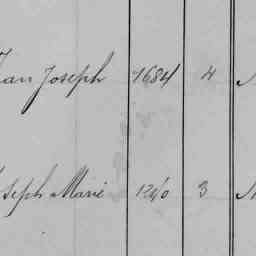 Jean Joseph 1684 4
Joseph Marie 1240 3